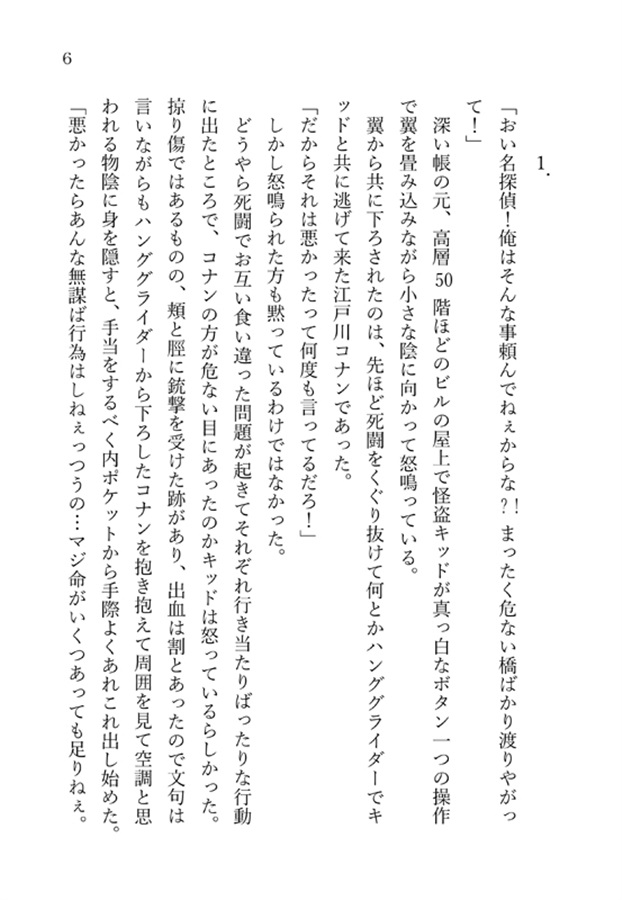 6
1.
「おい名探偵！俺はそんな事頼んでねぇからな?!まったく危ない橋ばかり渡りやがっ
て！」
深い帳の元、高層50階ほどのビルの屋上で怪盗キッドが真っ白なボタン一つの操作
で翼を畳み込みながら小さな陰に向かって怒鳴っている。
翼から共に下ろされたのは、先ほど死闘をくぐり抜けて何とかハンググライダーでキ
ッドと共に逃げて来た江戸川コナンであった。
「だからそれは悪かったって何度も言ってるだろ！」
しかし怒鳴られた方も黙っているわけではなかった。
どうやら死闘でお互い食い違った問題が起きてそれぞれ行き当たりばったりな行動
に出たところで、コナンの方が危ない目にあったのかキッドは怒っているらしかった。
掠り傷ではあるものの、頬と脛に銃撃を受けた跡があり、出血は割とあったので文句は
言いながらもハンググライダーから下ろしたコナンを抱き抱えて周囲を見て空調と思
われる物陰に身を隠すと、手当をするべく内ポケットから手際よくあれこれ出し始めた。
「悪かったらあんな無謀ば行為はしねぇっつうの…マジ命がいくつあっても足りねぇ。